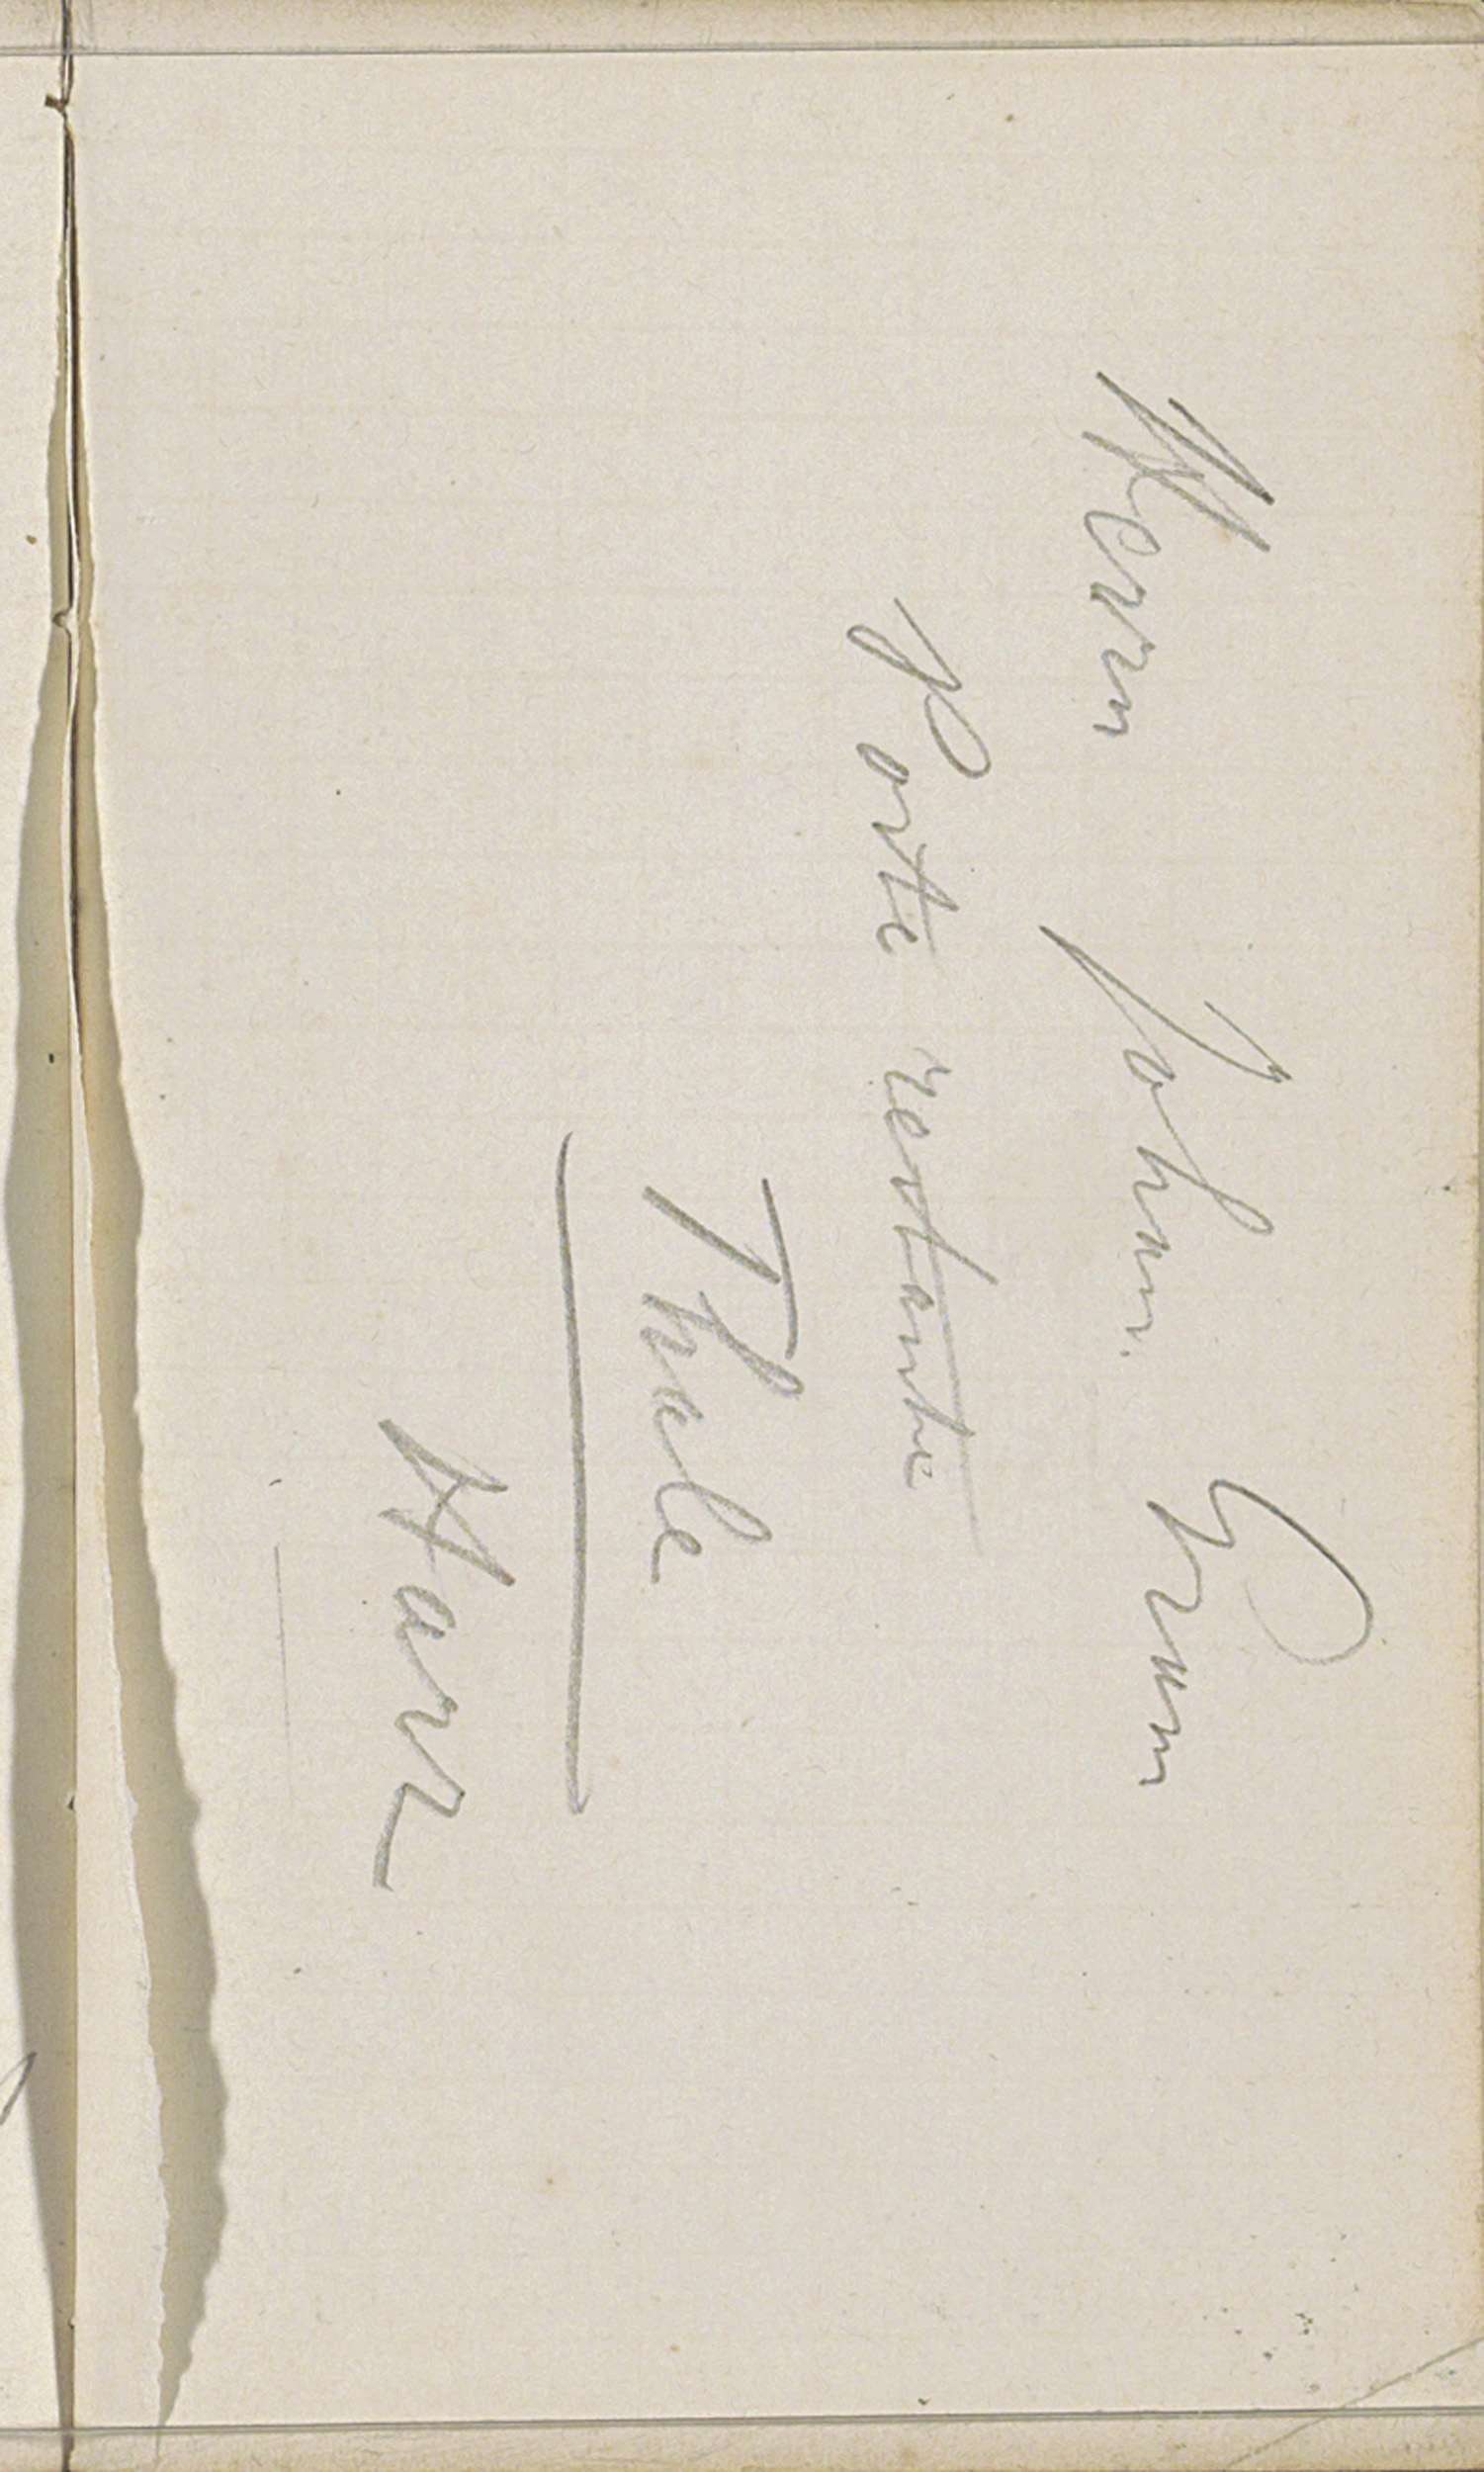 Herrn Johann. Gram
Poste restante
Thale
Harz